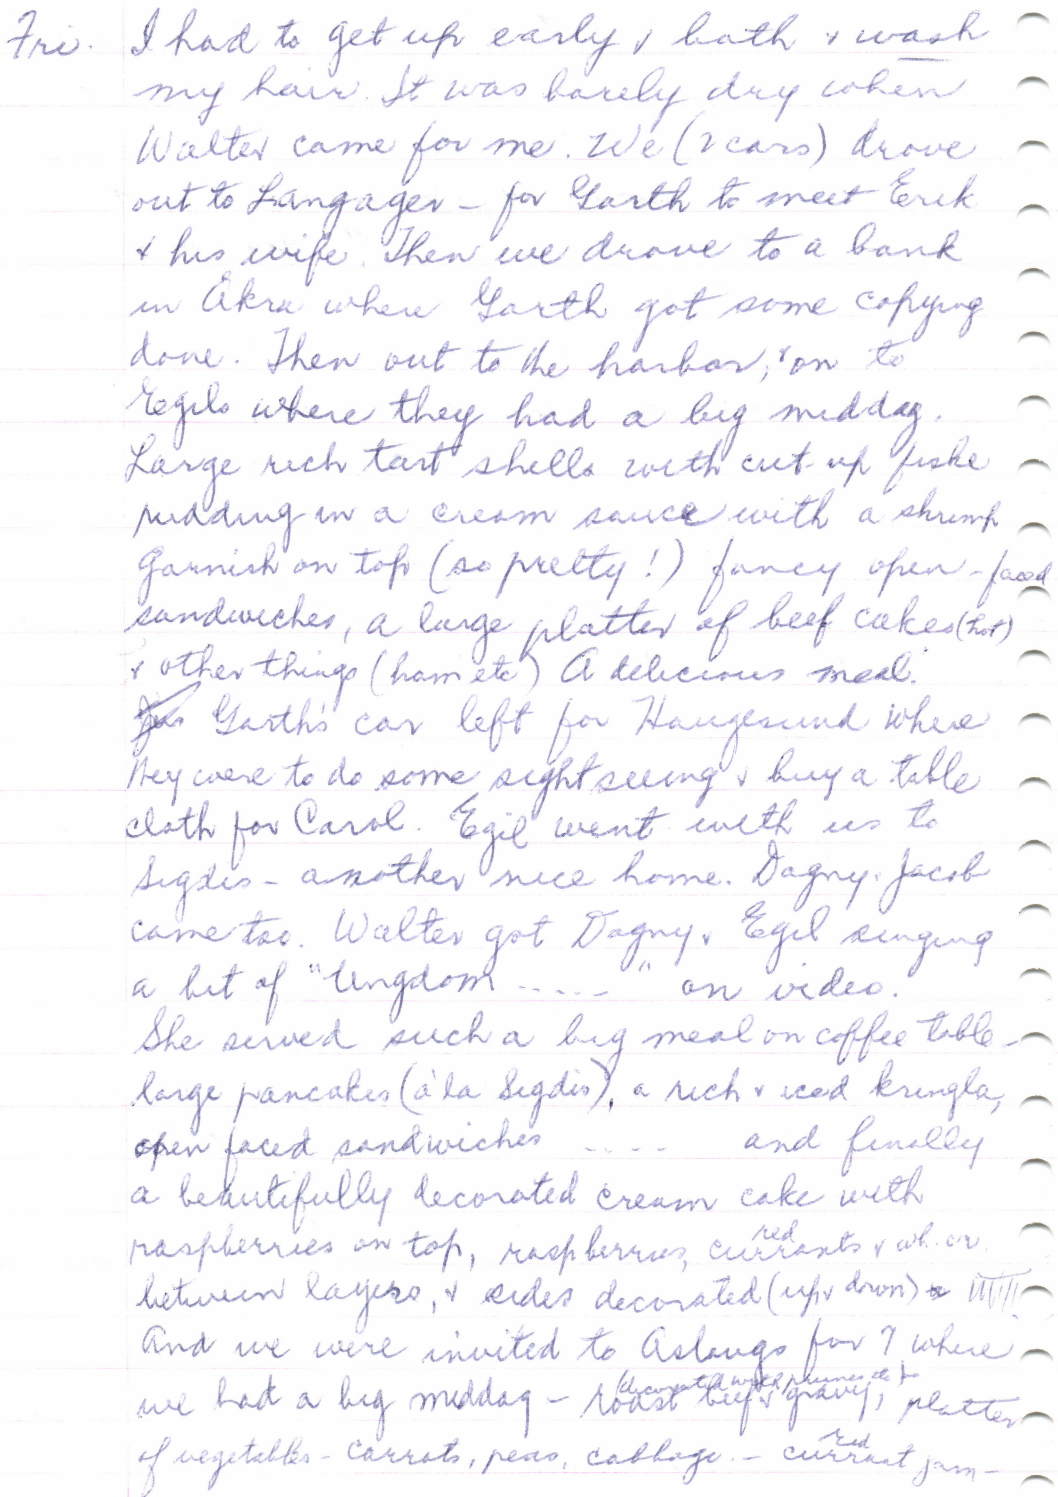 Fri. I had to get up early & bath & wash
my hair. It was barely dry when
Walter came for me. We (2 cars) drove
out to Langager - for Garth to meet Erik
& his wife. Then we drove to a bank
in Åkra where Garth got some copying
done. Then out to the harbor, & on to
Egils where they had a big middag.
Large rich tart shells with cut-up fiske
pudding in a cream sauce with a shrimp
garnish on top (so pretty!) fancy open-faced
sandwiches, a large platter of beef cakes (hot)
& other things (ham etc) A delicious meal.
Garth's car left for Haugesund where
they were to do some sightseeing & buy a table
cloth for Carol. Egil went with us to
Sigdis - another nice home. Dagny & Jacob
came too. Walter got Dagny & Egil singing
a bit of "Ungdom ....." on video.
She served such a big meal on coffee table -
large pancakes (à la Sigdis), a rich & iced kringla,
open faced sandwiches .... and finally
a beautifully decorated cream cake with
raspberries on top, raspberries, red currants & wh. cr.
between layers, & sides decorated (up & down)
And we were invited to Aslaugs for 7 where
we had a big middag - roast beef & gravy, (decorated with prunes etc) platter
of vegetables - carrots, peas, cabbage. - red currant jam -